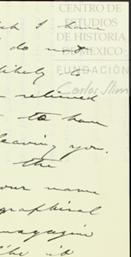 CENTRO DE
ESTUDIOS
DE HISTORIA
DE MEXICO
FUNDACIÓN
Carlos Slim
I have
do not
likely to
relieved
to have
leaving you.
the
your name
graphical
magazine
like it